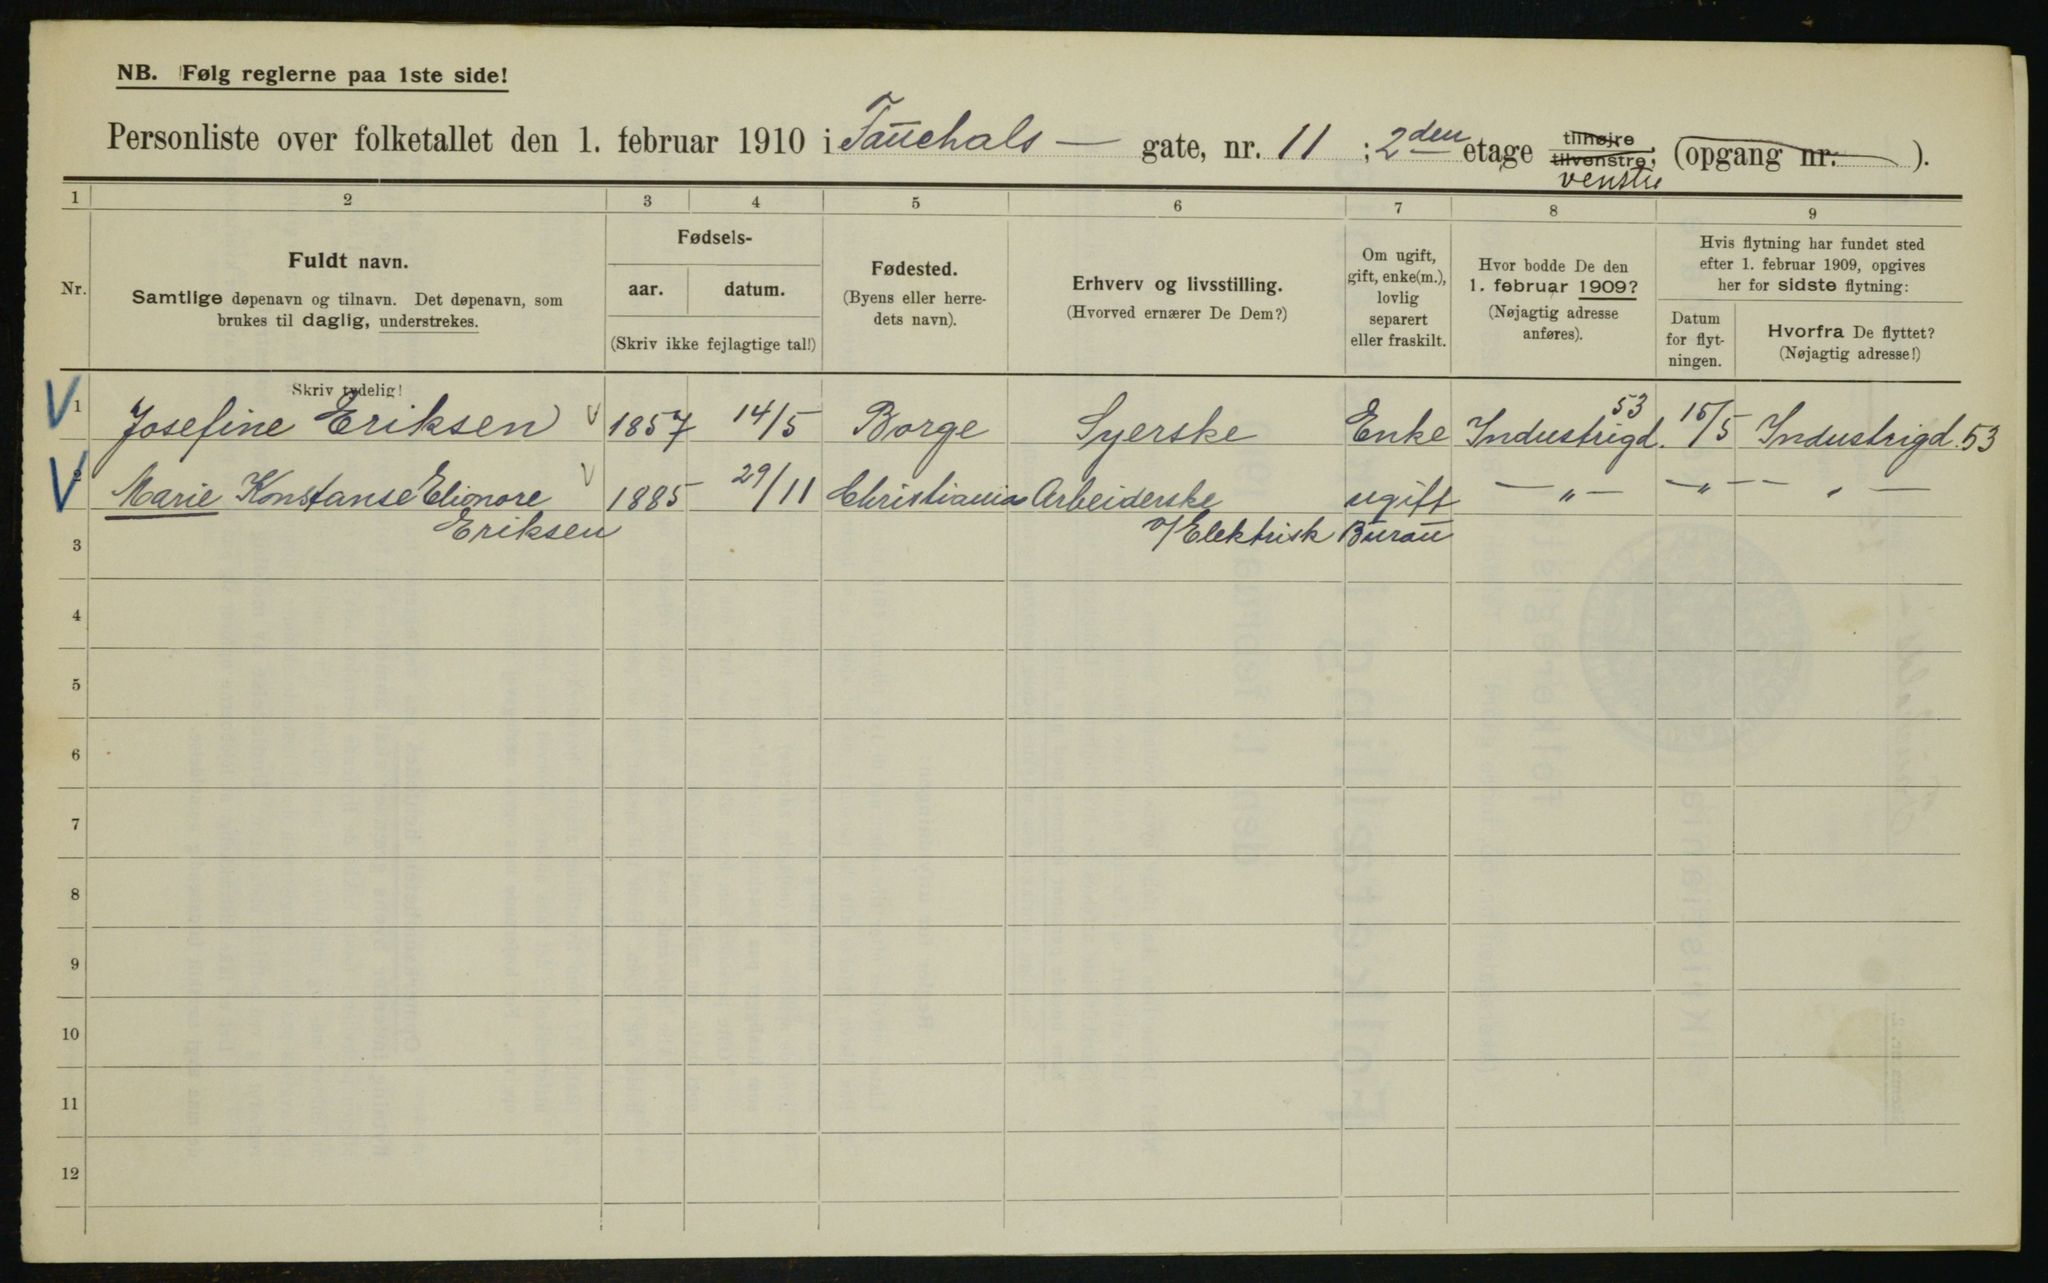 NB. Følg reglerne paa 1ste side!
Personliste over folketallet den 1. februar 1910 i Tauchals — gate, nr. 11 ; 2den etage tilhøjre, tilvenstre; (opgang nr. ).
venstre
1 2 3 4 5 6 7 8 9
Nr.
Fuldt navn.
Samtlige døpenavn og tilnavn. Det døpenavn, som
brukes til daglig, understrekes.
Skriv tydelig!
Fødsels-
aar. datum.
(Skriv ikke fejlagtige tal!)
Fødested.
(Byens eller herre-
dets navn).
Erhverv og livsstilling.
(Hvorved ernærer De Dem?)
Om ugift,
gift, enke(m.),
lovlig
separert
eller fraskilt.
Hvor bodde De den
1. februar 1909?
(Nøjagtig adresse
anføres).
Hvis flytning har fundet sted
efter 1. februar 1909, opgives
her for sidste flytning:
Datum
for flyt-
ningen.
Hvorfra De flyttet?
(Nøjagtig adresse!)
V 1 Josefine Eriksen V 1857 14/5 Borge Syerske Enke Industrigd. 53 15/5 Industrigd. 53
V 2 Marie Konstanse Elionore V 1885 29/11 Christiania Arbeiderske ugift — „ — — „ — — „ —
Eriksen v/ Elektrisk Burau
3
4
5
6
7
8
9
10
11
12